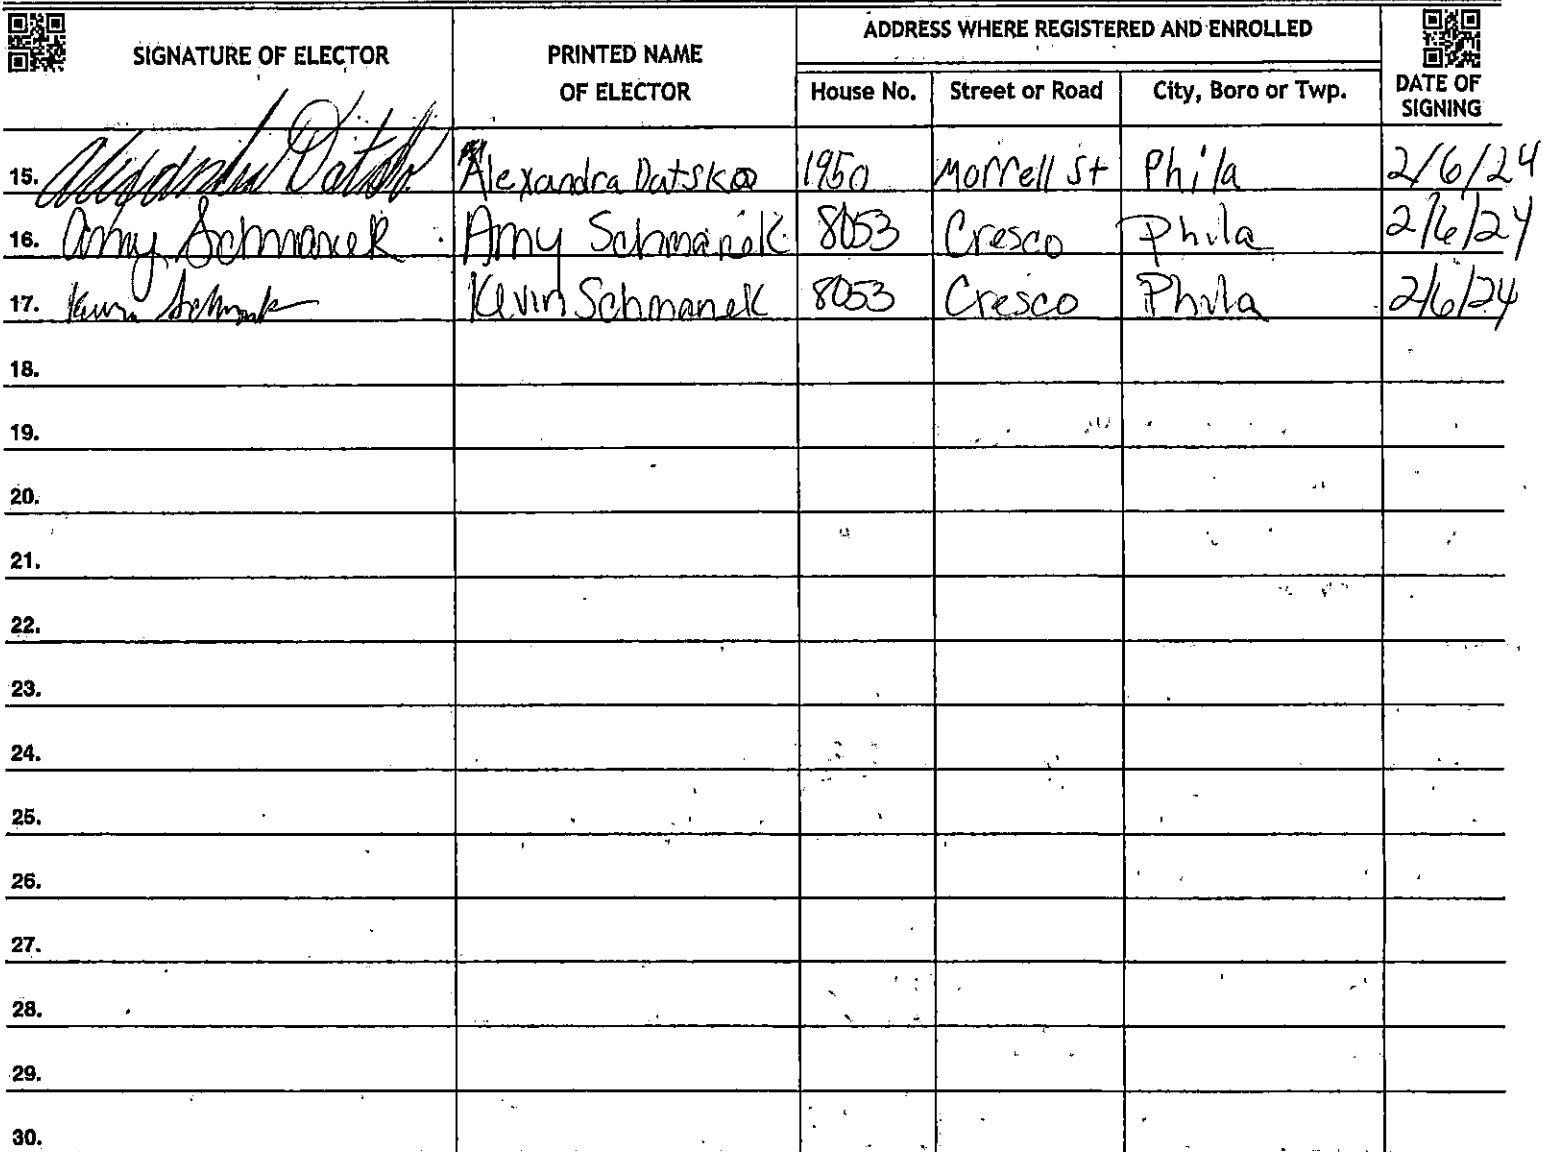 ADDRESS WHERE REGISTERED AND ENROLLED
SIGNATURE OF ELECTOR PRINTED NAME OF ELECTOR House No. Street or Road City, Boro or Twp. DATE OF SIGNING
15. Alexandra Datsko Alexandra Datsko 1950 Morrell St Phila 2/6/24
16. Amy Schmanek Amy Schmanek 8053 Cresco Phila 2/6/24
17. Kevin Schmanek Kevin Schmanek 8053 Cresco Phila 2/6/24
18.
19.
20.
21.
22.
23.
24.
25.
26.
27.
28.
29.
30.